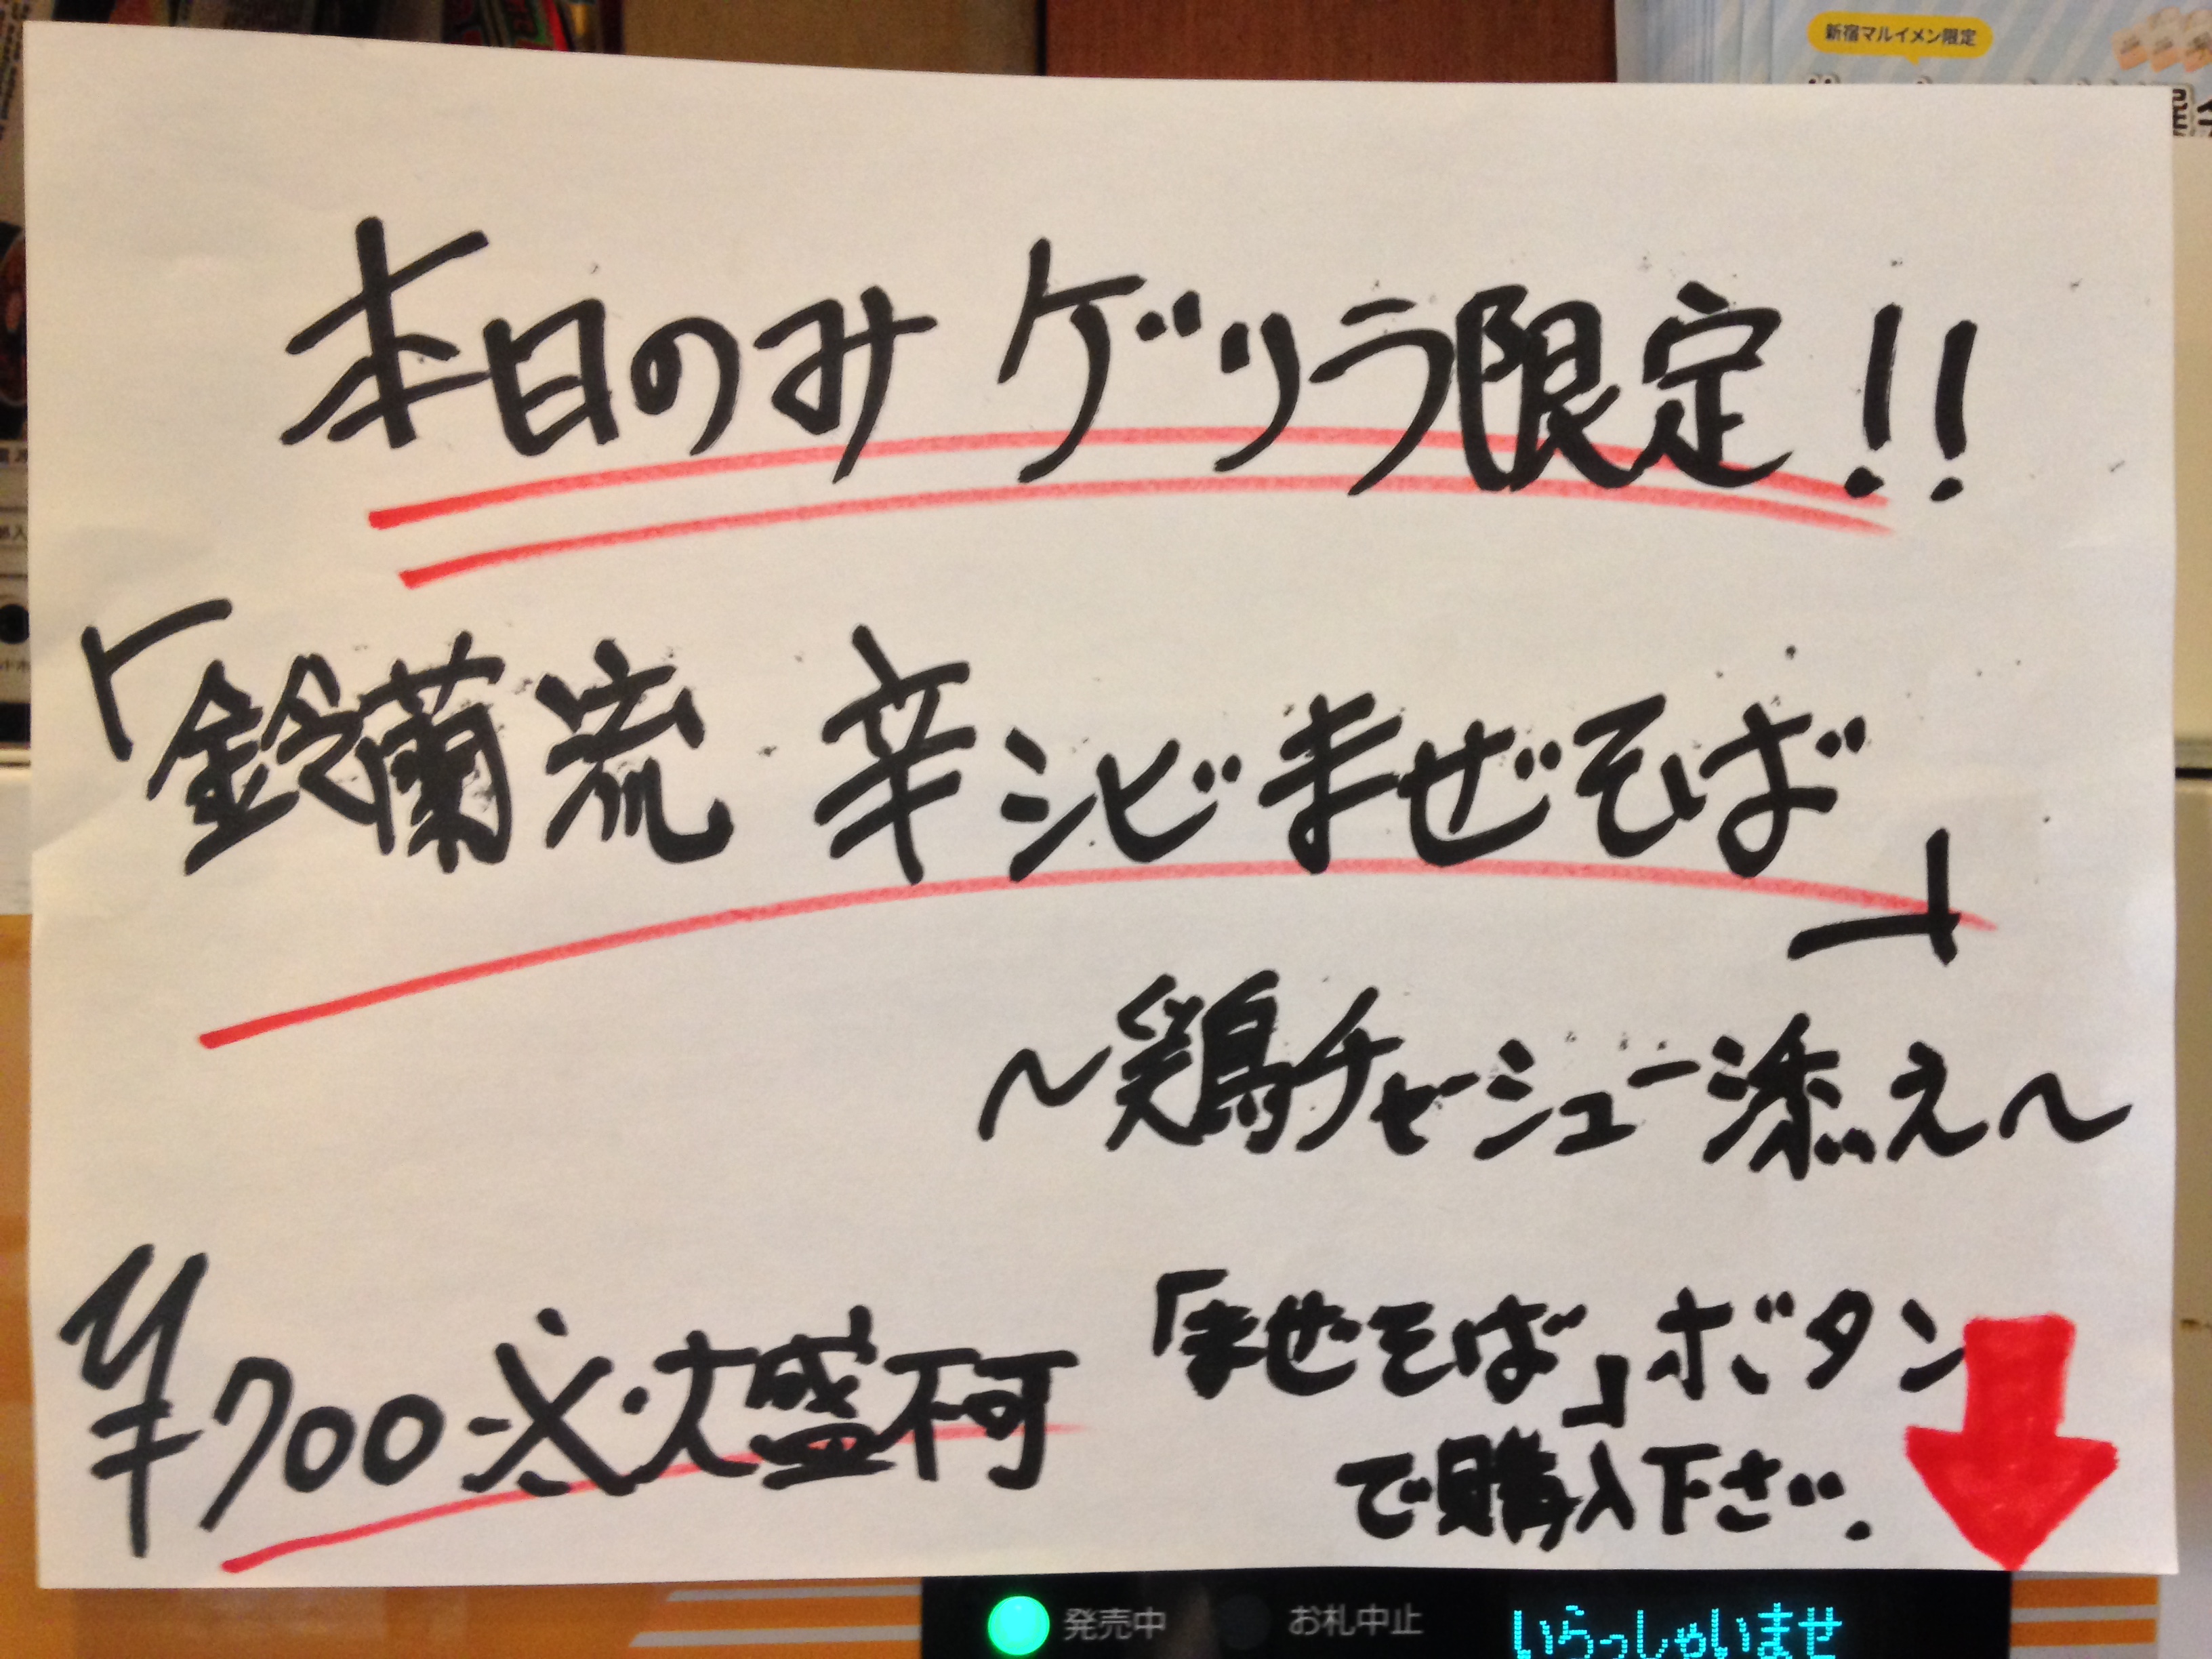 新宿マルイメン限定
本日のみ ゲリラ限定!!
「鈴蘭流 辛シビまぜそば」
〜鶏チャーシュー添え〜
¥700 ※大盛不可
「まぜそば」ボタン
で購入下さい.
発売中 お札中止 いらっしゃいませ